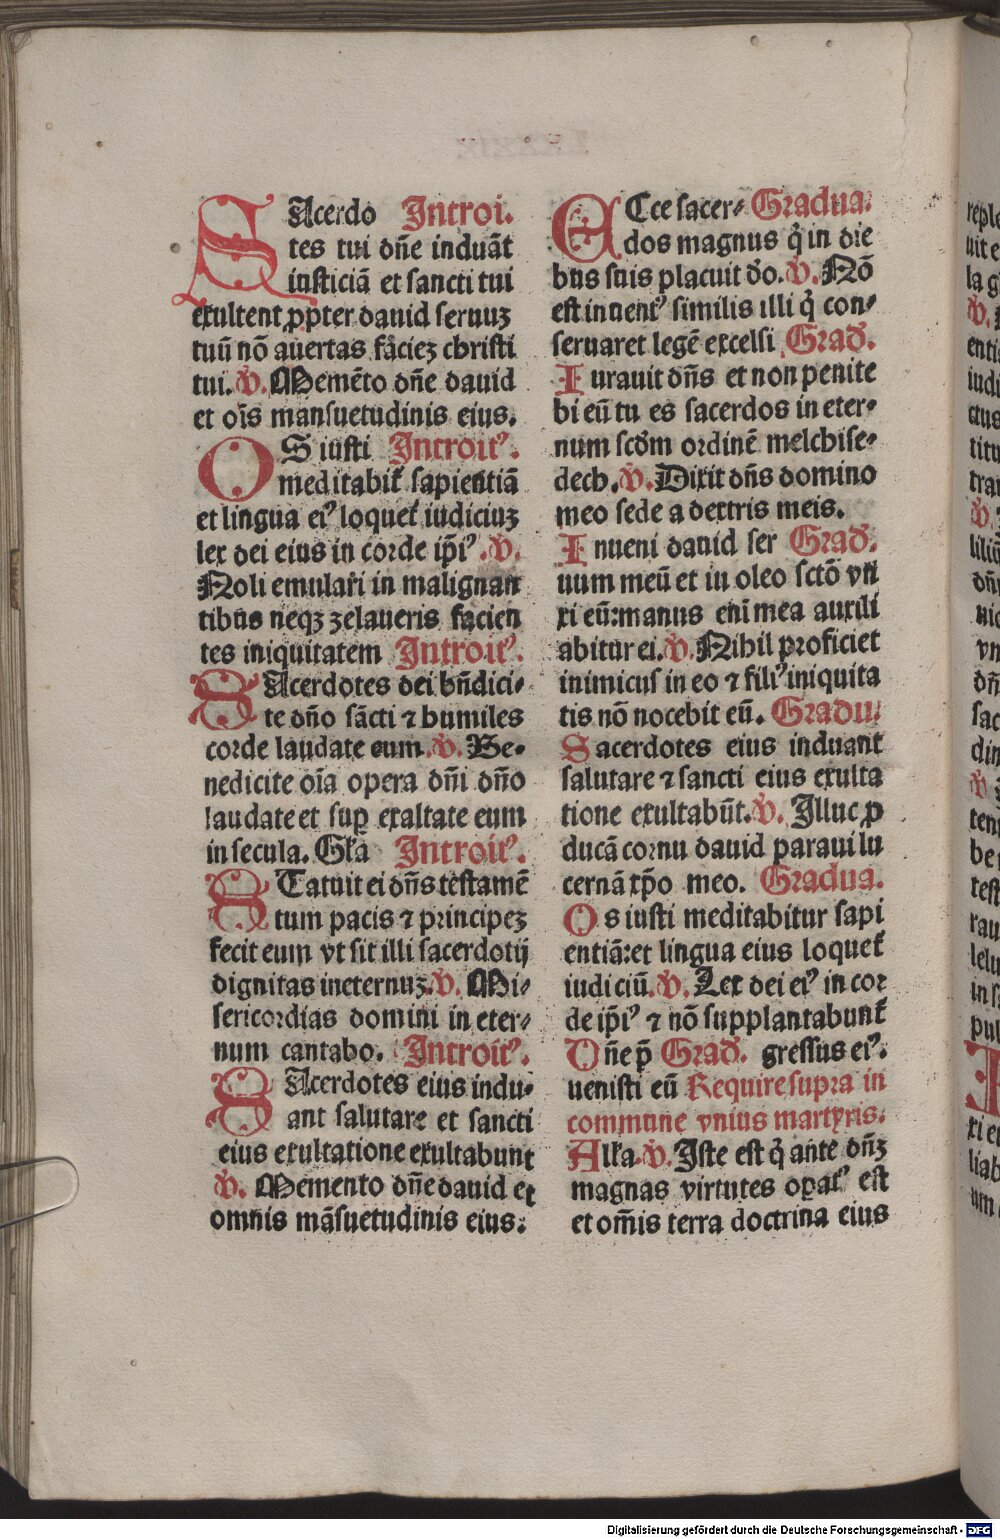 SAcerdo Introi.
tes tui dn̄e induāt
iusticiā et sancti tui
exultent ꝓpter dauid seruuꝫ
tuū nō auertas faciez christi
tui. V̉. Memēto dn̄e dauid
et oīs mansuetudinis eius.
OS iusti Introitꝰ.
meditabit᷑ sapientiā
et lingua eiꝰ loquet᷑ iudiciuꝫ
lex dei eius in corde ip̄iꝰ. V̉.
Noli emulari in malignan
tibus neqꝫ zelaueris facien
tes iniquitatem Introitꝰ.
SAcerdotes dei bn̄dici-
te dn̄o sācti ⁊ humiles
corde laudate eum. V̉. Be-
nedicite oīa opera dn̄i dn̄o
laudate et suꝑ exaltate eum
in secula. Gl'a Introitꝰ.
STatuit ei dn̄s testamē
tum pacis ⁊ principeꝫ
fecit eum vt sit illi sacerdotij
dignitas ineternuꝫ. V̉. Mi-
sericordias domini in eter-
num cantabo. Introitꝰ.
SAcerdotes eius indu-
ant salutare et sancti
eius exultatione exultabunt
V̉. Memento dn̄e dauid et
omnis māsuetudinis eius:
ECce sacer- Gradua.
dos magnus q̉ in die
bus suis placuit d̄o. V̉. Nō
est inuentꝰ similis illi q̉ con-
seruaret legē excelsi Grad̄.
Iurauit dn̄s et non penite
bi eū tu es sacerdos in eter-
num scd̄m ordinē melchise-
dech. V̉. Dixit dn̄s domino
meo sede a dextris meis.
Inueni dauid ser Grad̄.
uum meū et in oleo sctō vn
xi eū: manus enī mea auxili
abitur ei. V̉. Nihil proficiet
inimicus in eo ⁊ filiꝰ iniquita
tis nō nocebit eū. Gradu.
Sacerdotes eius induant
salutare ⁊ sancti eius exulta
tione exultabūt. V̉. Illuc ꝓ
ducā cornu dauid paraui lu
cernā xp̄o meo. Gradua.
Os iusti meditabitur sapi
entiā: et lingua eius loquet᷑
iudiciū. V̉. Lex dei eiꝰ in cor
de ip̄iꝰ ⁊ nō supplantabunt᷑
Dn̄e p̄ Grad̄. gressus eiꝰ.
uenisti eū Require supra in
commune vnius martyris.
All'a. V̉. Iste est q̉ ante dn̄ꝫ
magnas virtutes oꝑatꝰ est
et om̄is terra doctrina eius
Digitalisierung gefördert durch die Deutsche Forschungsgemeinschaft - DFG